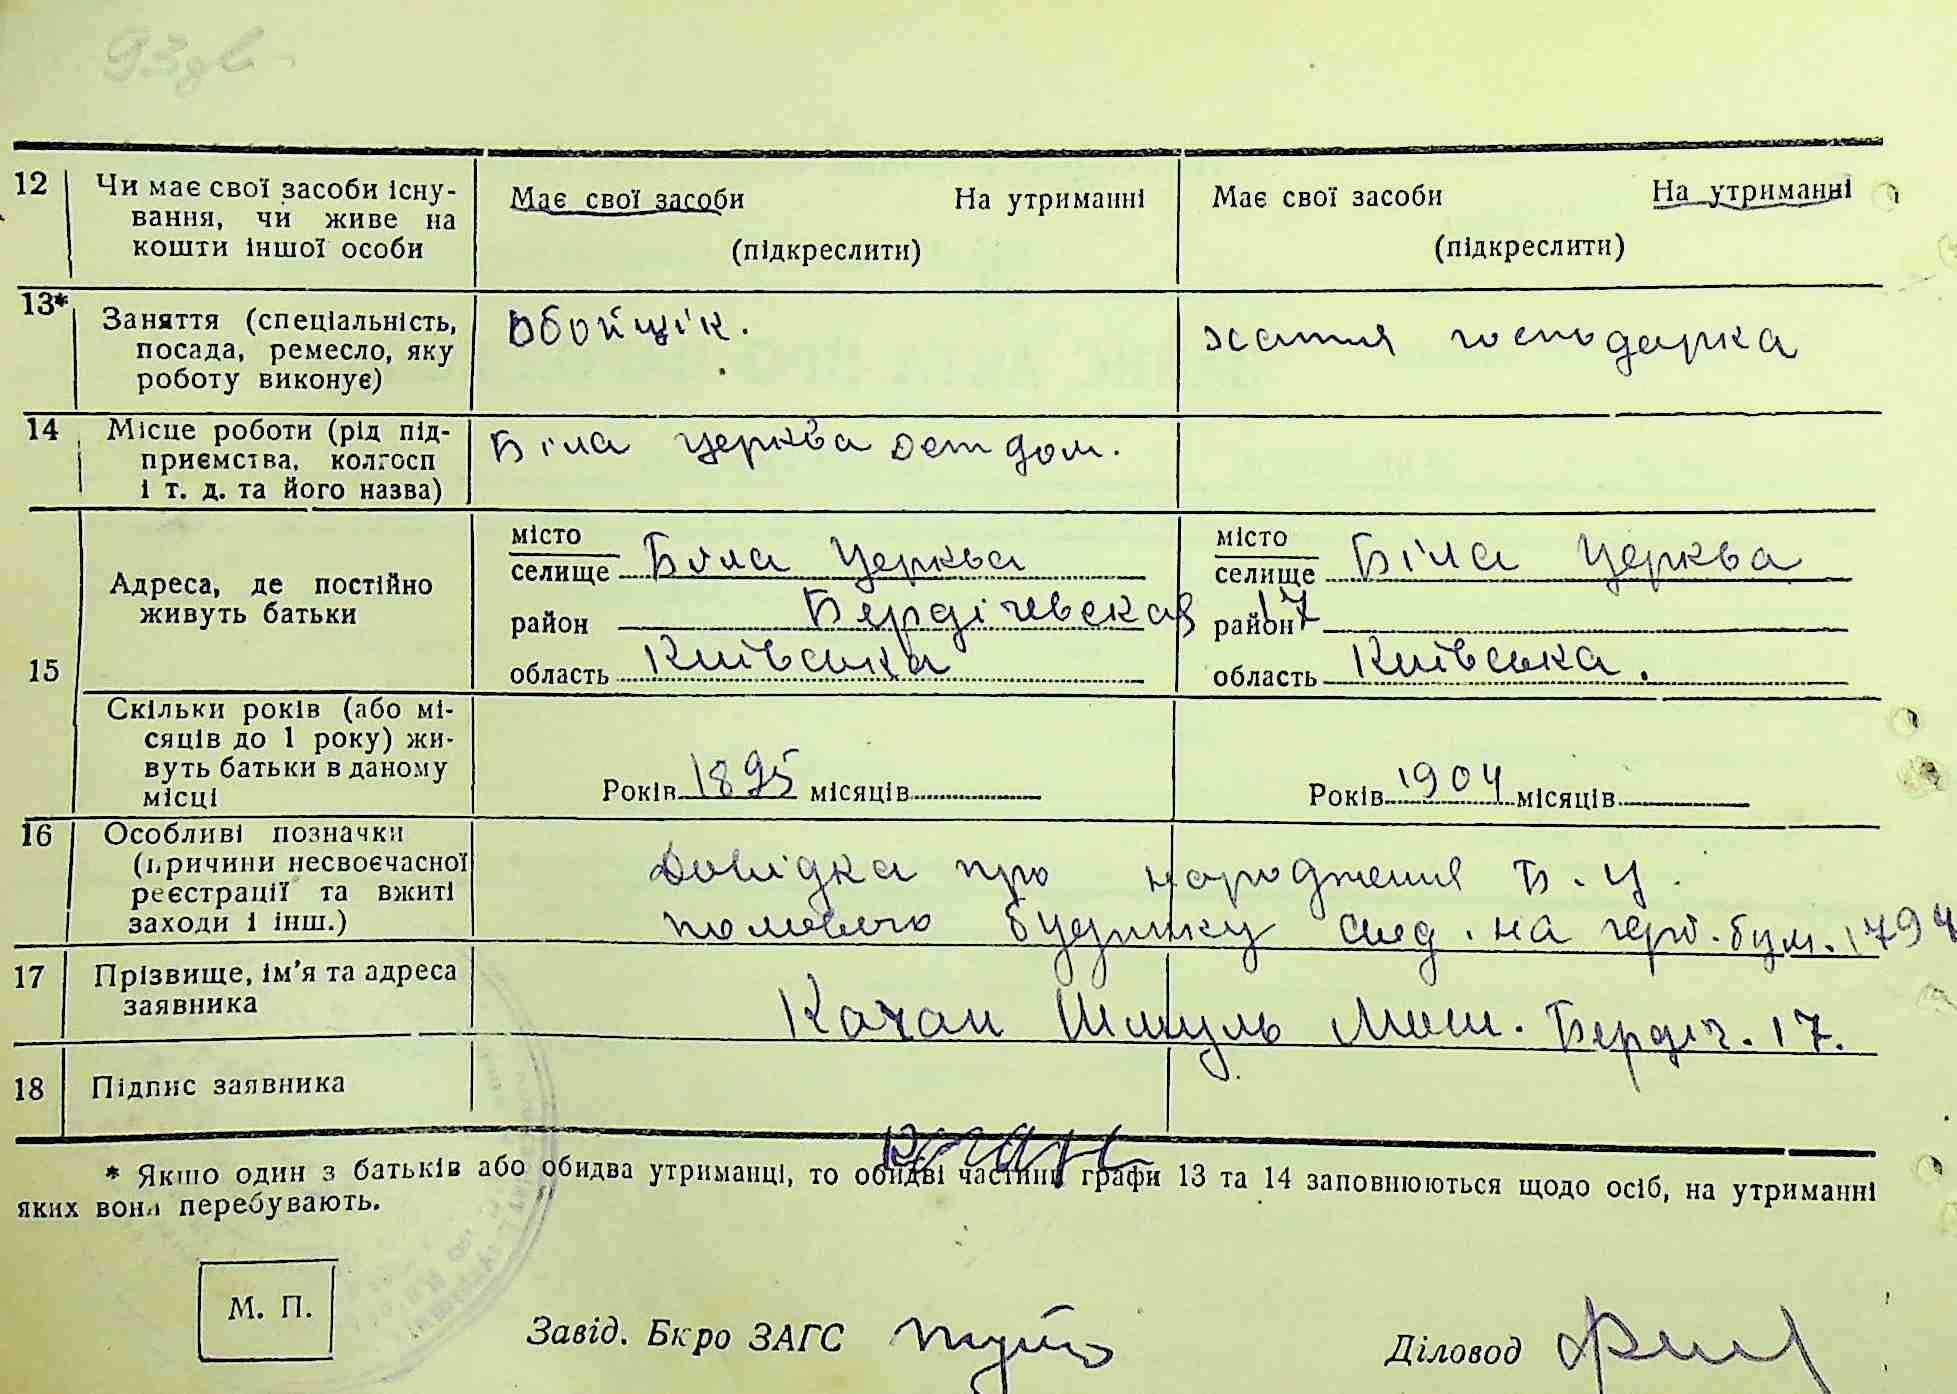 12 Чи має свої засоби існу-
вання, чи живе на
кошти іншої особи
Має свої засоби На утриманні
(підкреслити)
Має свої засоби На утриманні
(підкреслити)
13* Заняття (спеціальність,
посада, ремесло, яку
роботу виконує)
Обойщік.
хатня господарка
14 Місце роботи (рід під-
приємства, колгосп
і т. д. та його назва)
Біла церква дет дом.
15 Адреса, де постійно
живуть батьки
місто
селище Біла Церква
район Бердічевская 17
область Київська
місто
селище Біла Церква
район
область Київська.
Скільки років (або мі-
сяців до 1 року) жи-
вуть батьки в даному
місці
Років 1895 місяців
Років 1904 місяців
16 Особливі позначки
(причини несвоєчасної
реєстрації та вжиті
заходи і інш.)
Довідка про народження Б. Ц.
будинку на герб. бум. 1794
17 Прізвище, ім'я та адреса
заявника
Качан Шмуль Мош. Бердіч. 17.
18 Підпис заявника
* Якшо один з батьків або обидва утриманці, то обидві частини графи 13 та 14 заповнюються щодо осіб, на утриманні
яких вони перебувають.
М. П.
Завід. Бюро ЗАГС
Діловод